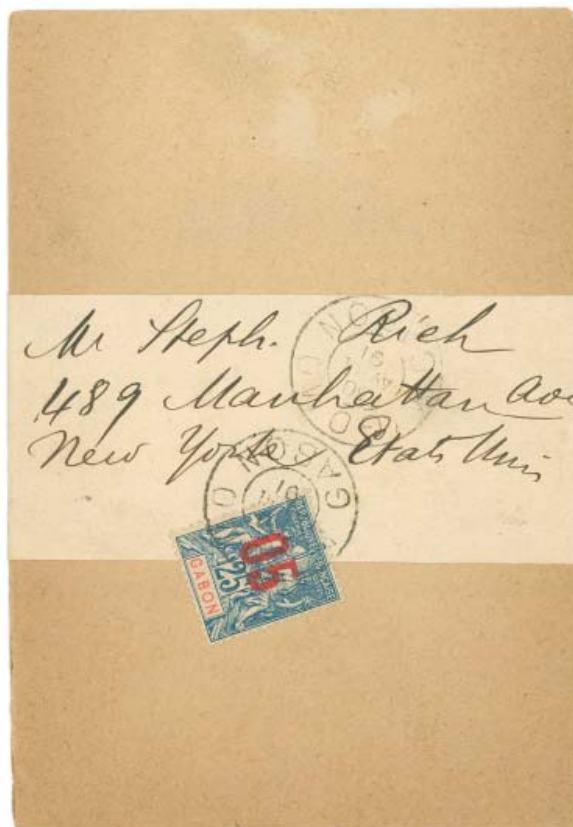 Mr Steph. Rich
489 Manhattan Ave
New York Etats Unis
GABON
GABON
05
25
GABON